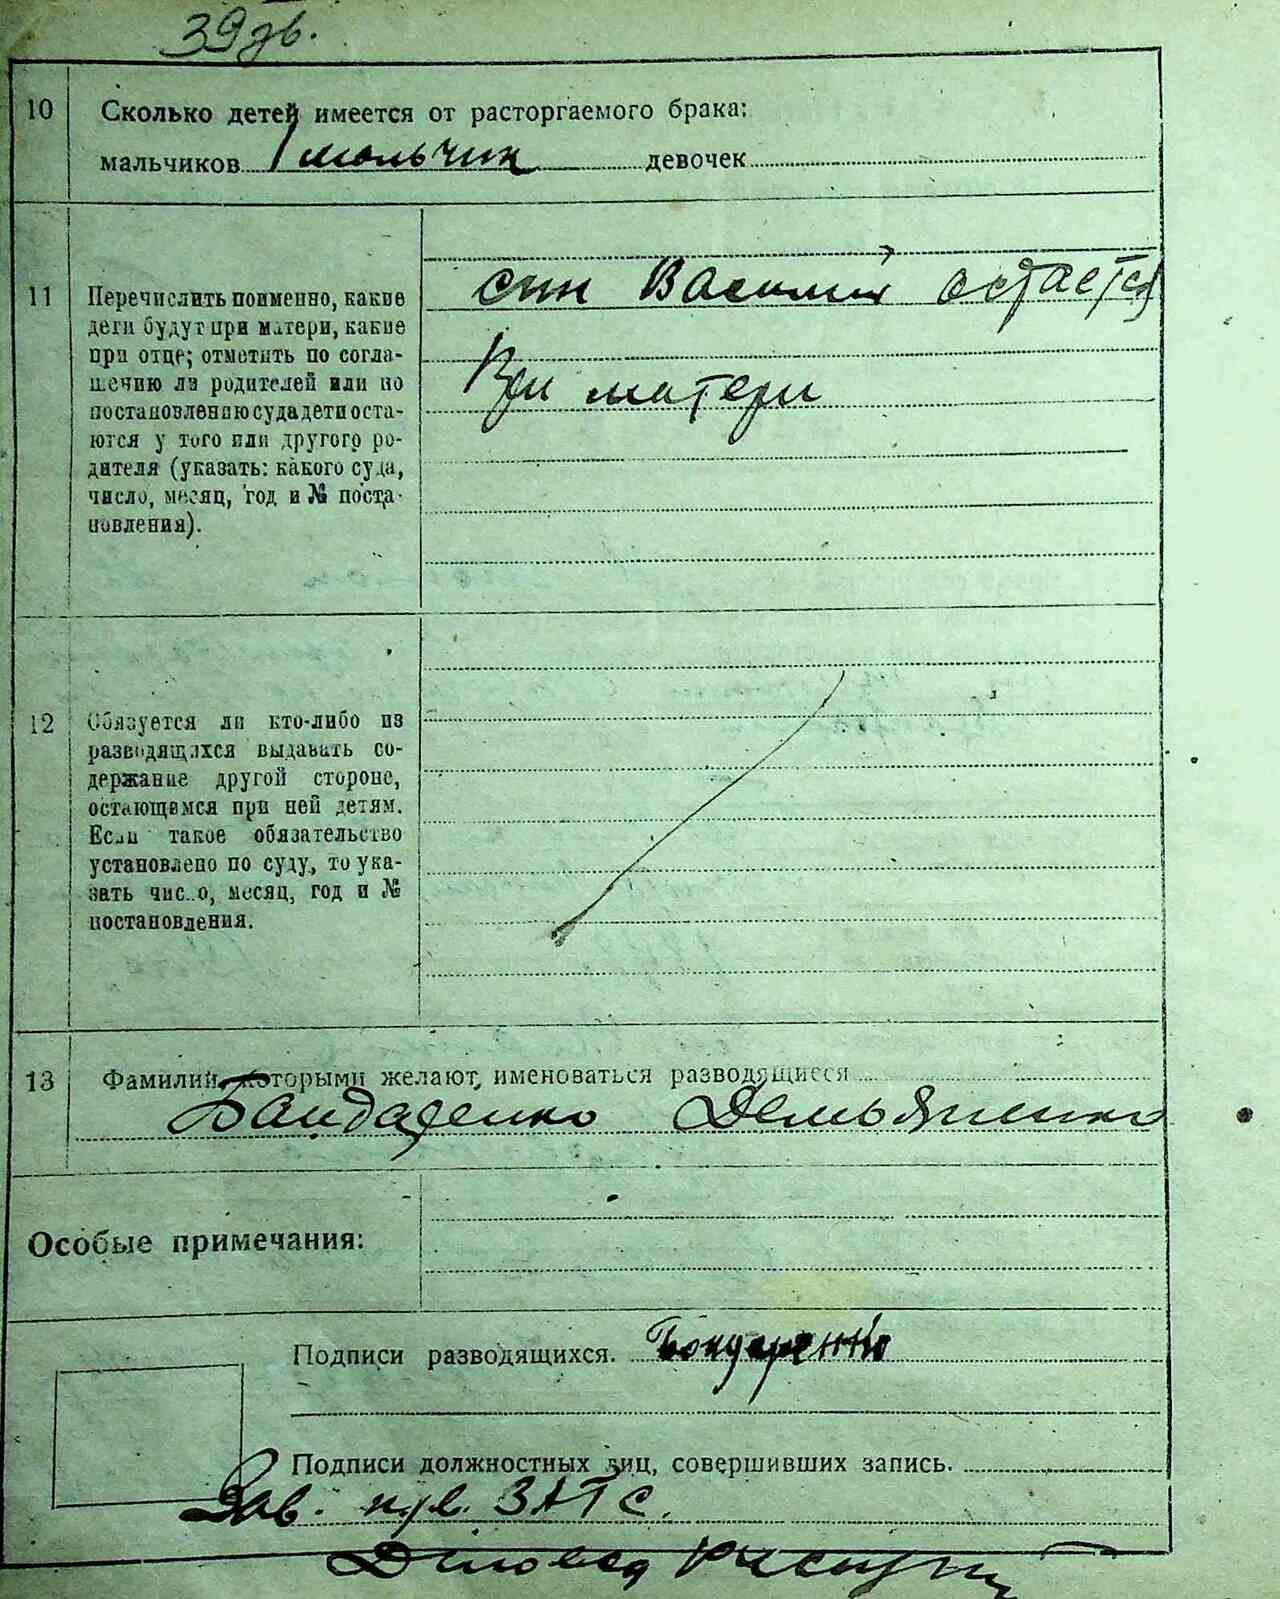 39 зв.
10 Сколько детей имеется от расторгаемого брака:
мальчиков 1 мальчик девочек
11 Перечислить поименно, какие
дети будут при матери, какие
при отце; отметить по согла-
шению ли родителей или по
постановлению суда дети оста-
ются у того или другого ро-
дителя (указать: какого суда,
число, месяц, год и № поста-
новления).
син Василий остается
При матери
12 Обязуется ли кто-либо из
разводящихся выдавать со-
держание другой стороне,
остающемся при ней детям.
Если такое обязательство
установлено по суду, то ука-
зать число, месяц, год и №
постановления.
13 Фамилии, которыми желают, именоваться разводящиеся
Бандаренко Демьяненко
Особые примечания:
Подписи разводящихся. Бондаренко
Подписи должностных лиц, совершивших запись.
Зав. ЗАГС.
Деловод